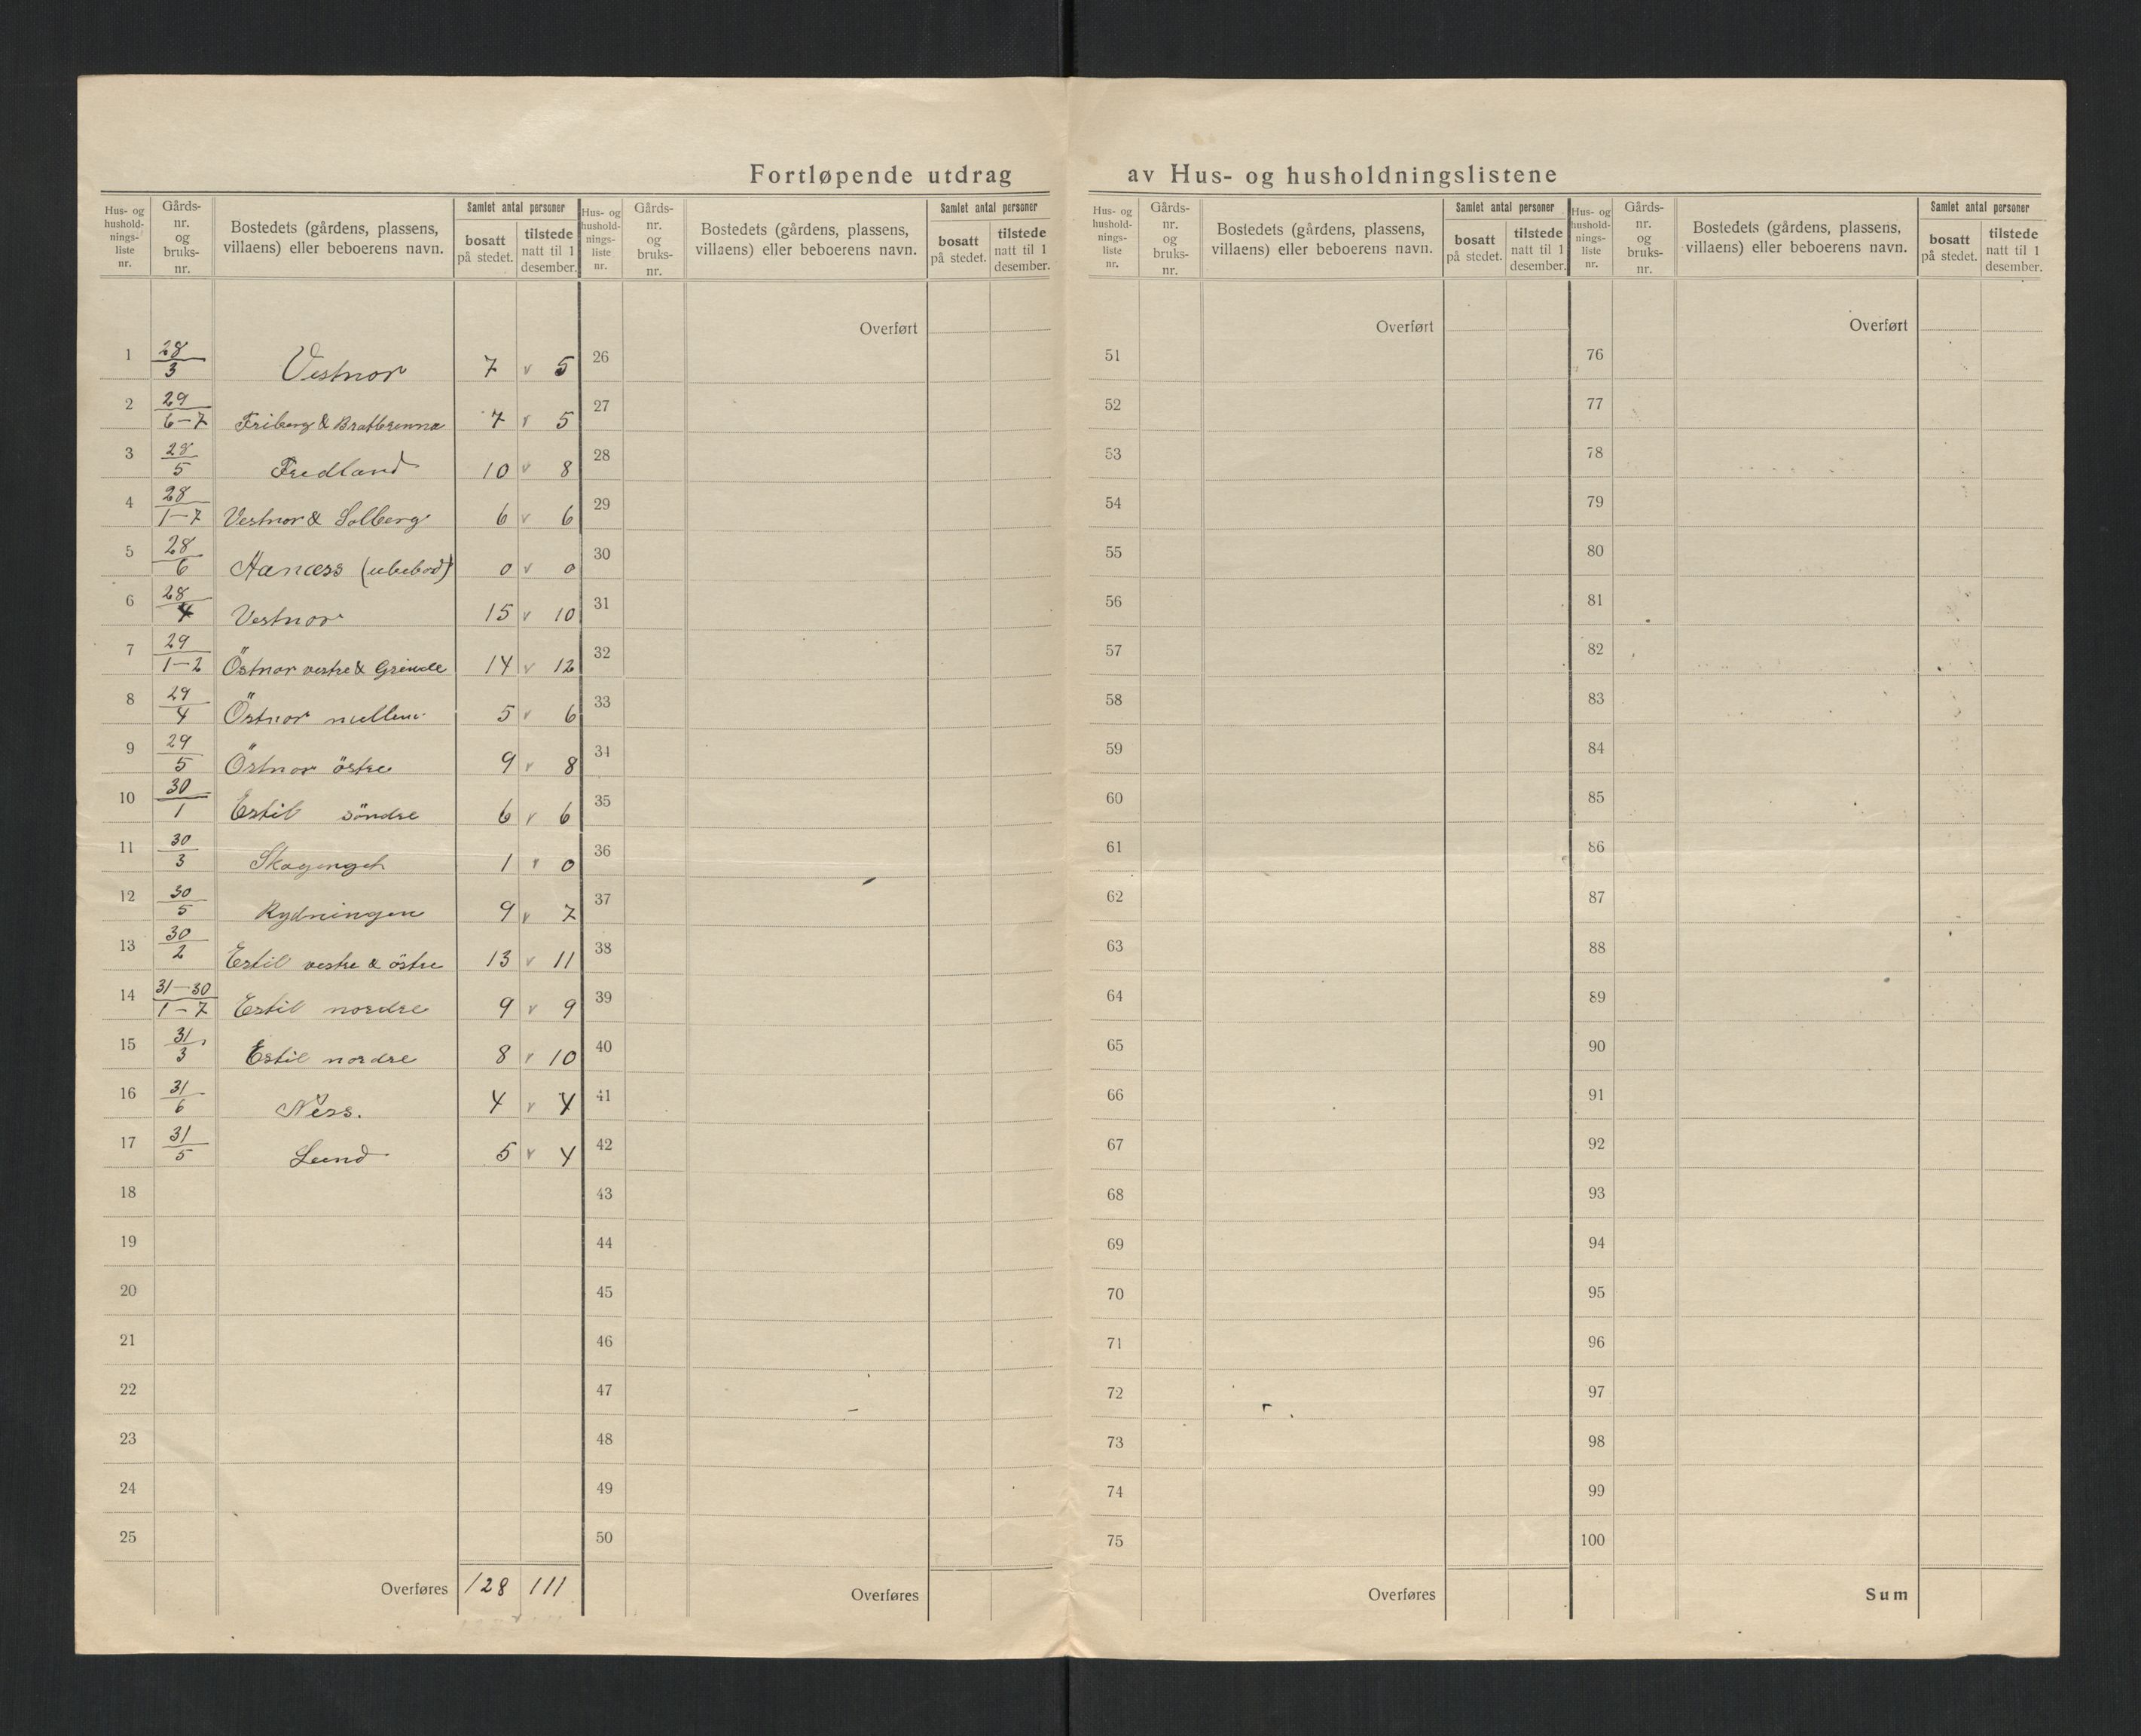 Fortløpende utdrag av Hus- og husholdningslistene
Hus- og hushold-nings-liste nr. Gårds-nr. og bruks-nr. Bostedets (gårdens, plassens, villaens) eller beboerens navn. Samlet antal personer bosatt på stedet. tilstede natt til 1 desember.
Hus- og hushold-nings-liste nr. Gårds-nr. og bruks-nr. Bostedets (gårdens, plassens, villaens) eller beboerens navn. Samlet antal personer bosatt på stedet. tilstede natt til 1 desember.
Hus- og hushold-nings-liste nr. Gårds-nr. og bruks-nr. Bostedets (gårdens, plassens, villaens) eller beboerens navn. Samlet antal personer bosatt på stedet. tilstede natt til 1 desember.
Hus- og hushold-nings-liste nr. Gårds-nr. og bruks-nr. Bostedets (gårdens, plassens, villaens) eller beboerens navn. Samlet antal personer bosatt på stedet. tilstede natt til 1 desember.
Overført Overført Overført
1 28/3 Vestnor 7 v 5 26 51 76
2 29/6-7 Friberg & Bratbrenna 7 v 5 27 52 77
3 28/5 Fredland 10 v 8 28 53 78
4 28/1-7 Vestnor & Solberg 6 v 6 29 54 79
5 28/6 (ubebod) 0 v 0 30 55 80
6 28/4 Vestnor 15 v 10 31 56 81
7 29/1-2 Östnor vestre & Grinde 14 v 12 32 57 82
8 29/4 Östnor mellem 5 v 6 33 58 83
9 29/5 Östnor östre 9 v 8 34 59 84
10 30/1 Estil söndre 6 v 6 35 60 85
11 30/3 Skogenget 1 v 0 36 61 86
12 30/5 Rydningen 9 v 7 37 62 87
13 30/2 Estil vestre & östre 13 v 11 38 63 88
14 31-30/1-7 Estil nordre 9 v 9 39 64 89
15 31/3 Estil nordre 8 v 10 40 65 90
16 31/6 Ness. 4 v 4 41 66 91
17 31/5 Lund 5 v 4 42 67 92
18 43 68 93
19 44 69 94
20 45 70 95
21 46 71 96
22 47 72 97
23 48 73 98
24 49 74 99
25 50 75 100
Overføres 128 111 Overføres Overføres Sum